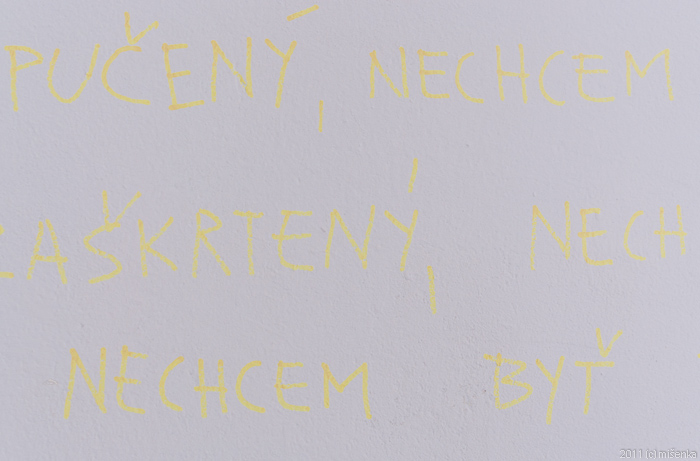 PUČENÝ, NECHCEM
ZAŠKRTENÝ, NECH
NECHCEM BYŤ
2011 (c) mišenka